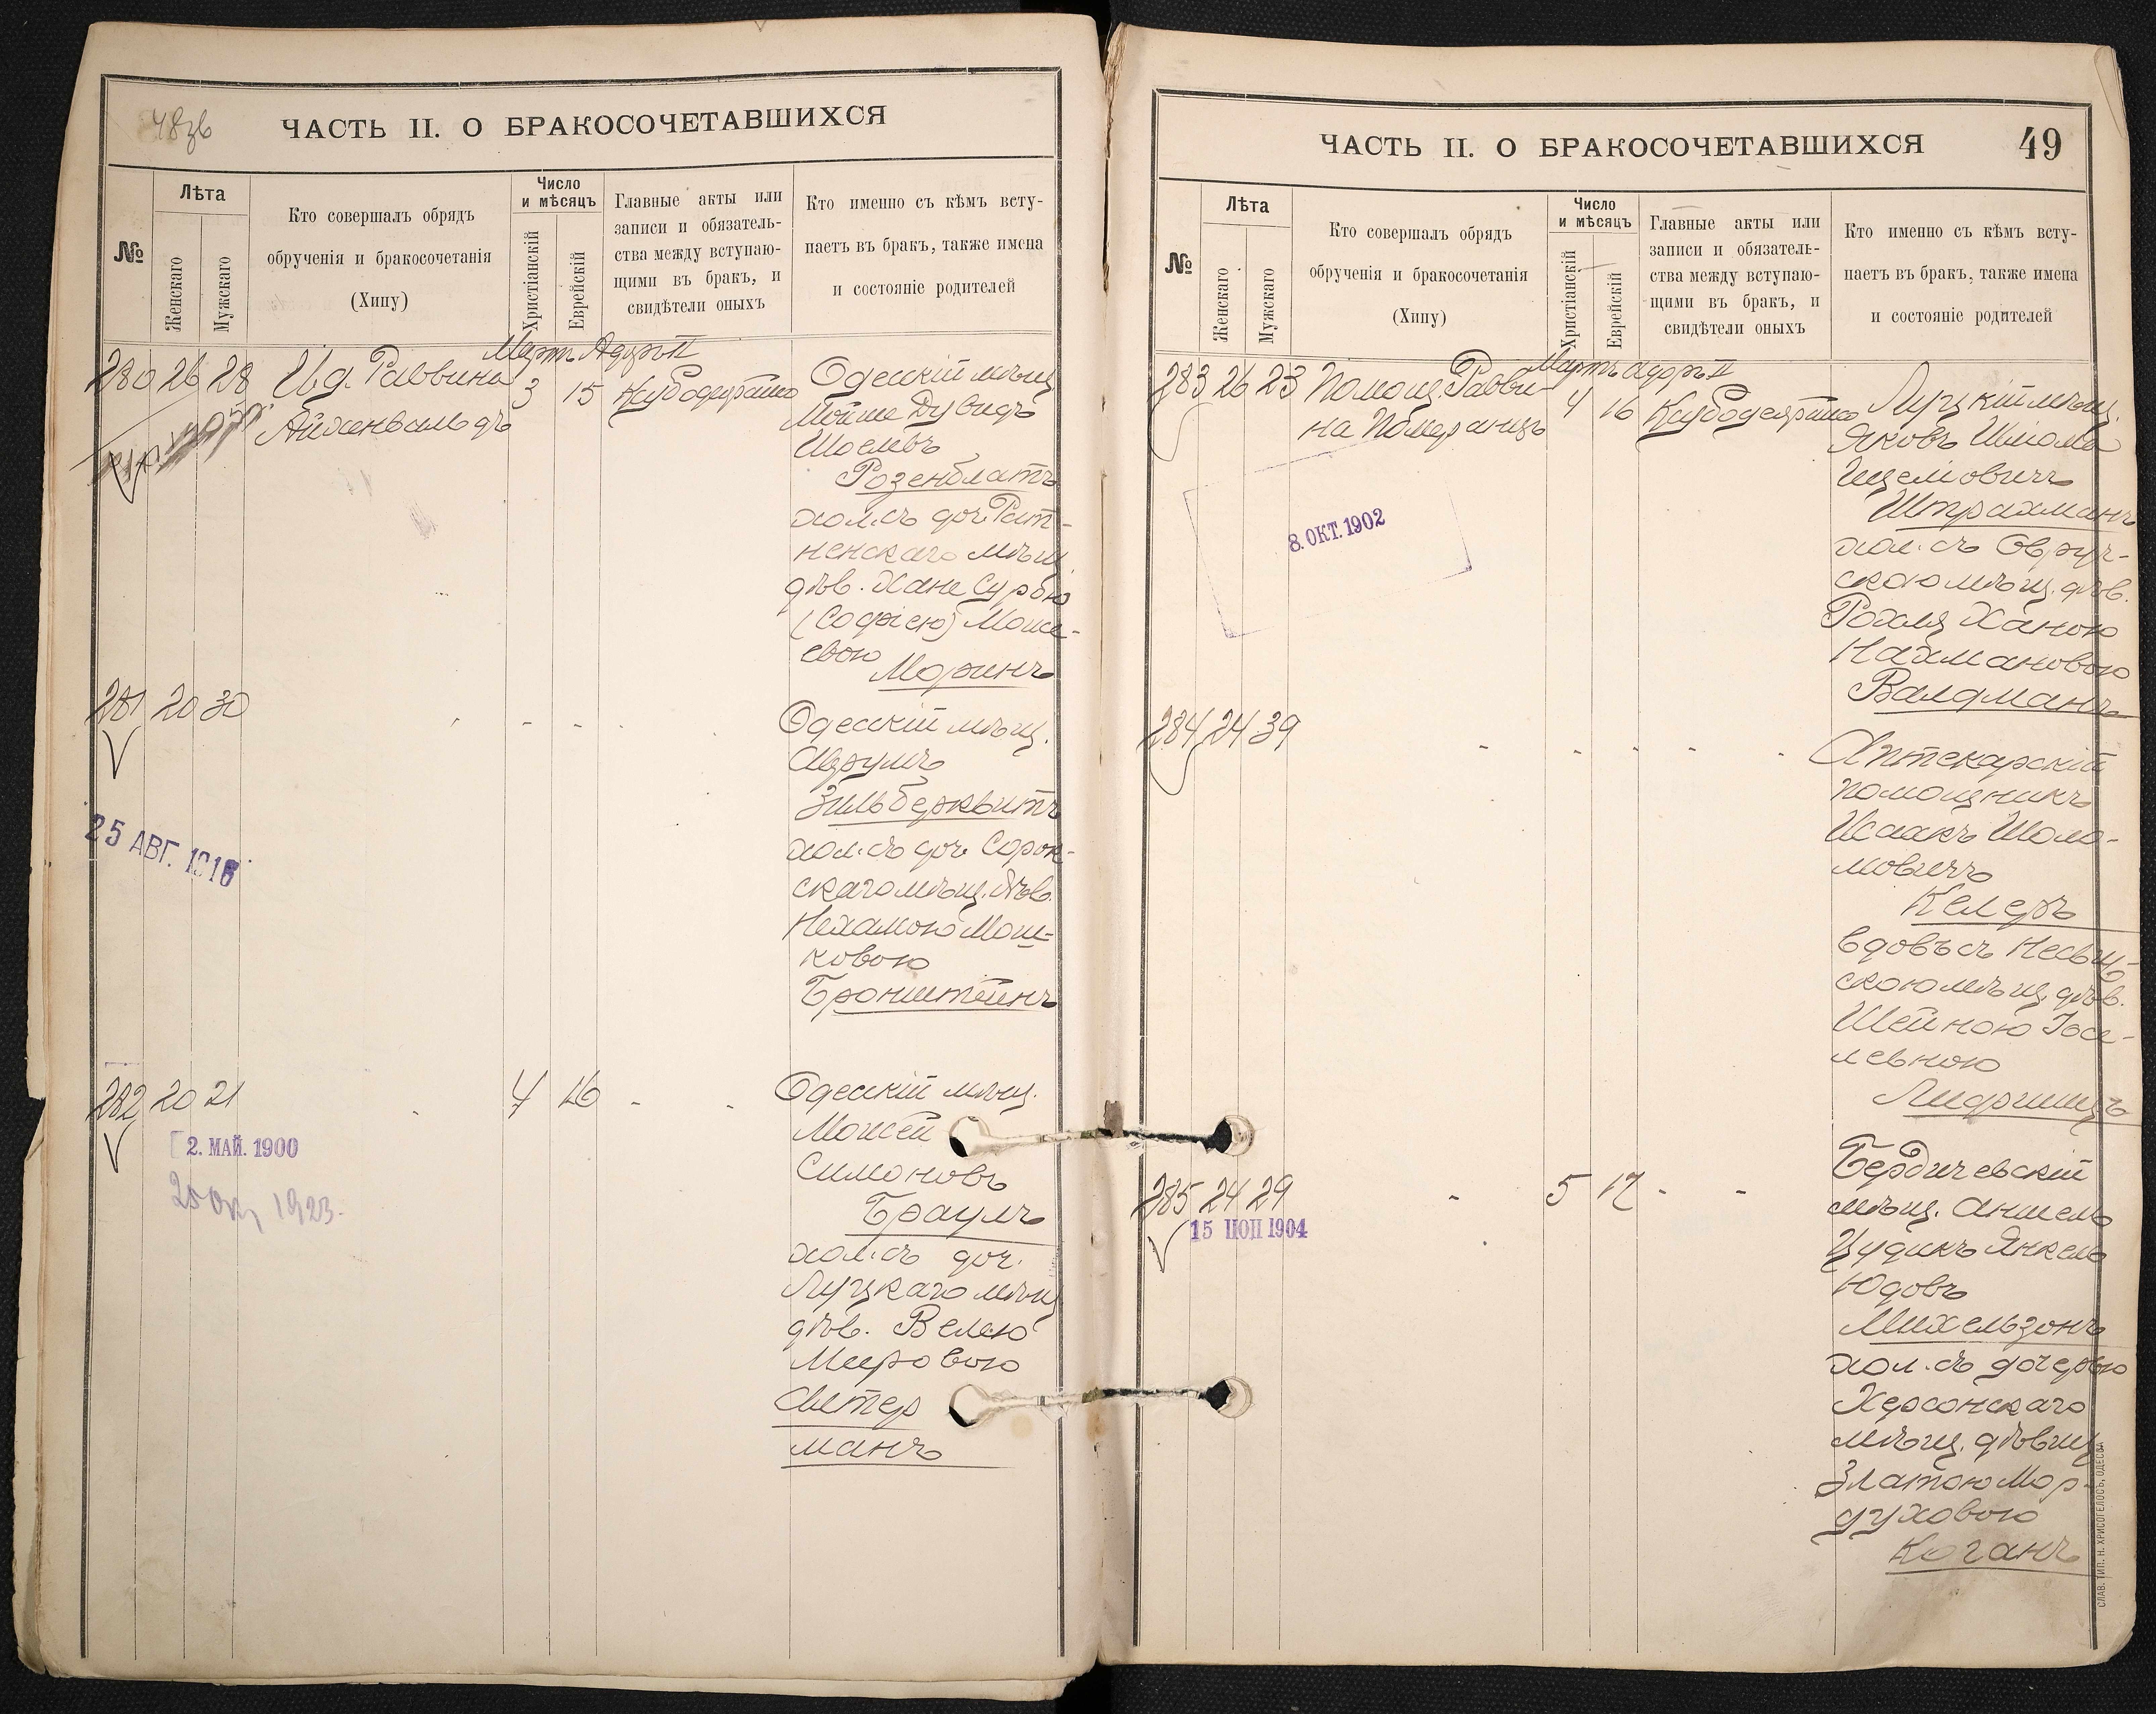 48зв
ЧАСТЬ II. О БРАКОСОЧЕТАВШИХСЯ
№
Лѣта
Женскаго
Мужскаго
Кто совершалъ обрядъ
обрученія и бракосочетанія
(Хипу)
Число
и мѣсяцъ
Христіанскій
Еврейскій
Главные акты или
записи и обязатель-
ства между вступаю-
щими въ бракъ, и
свидѣтели оныхъ
Кто именно съ кѣмъ всту-
паетъ въ бракъ, также имена
и состояніе родителей
Мартъ Адаръ II
280 26 28 И.д. Раввина
Айхенвальдъ
3 15
Одесскій мѣщ.
Мойше Дувидъ
Розенблатъ
хол. съ доч. Рат-
ненскаго мѣщ.
дѣв. Хане Сурою
(Софіею) Моше-
евою
Моринъ
281 20 30
Одесскій мѣщ.
Аврумъ
Зильберквитъ
хол. съ доч. Сорок-
скаго мѣщ. дѣв.
Нехамою Мош-
ковою
Бронштейнъ
25 АВГ. 1916
282 20 21 - 4 16 - -
Одесскій мѣщ.
Мойсей
Симоновъ
Браулъ
хол. съ доч.
Луцкаго мѣщ.
дѣв. Велею
Мееровою
Светер
манъ
2. МАЙ. 1900
1923.
ЧАСТЬ II. О БРАКОСОЧЕТАВШИХСЯ
49
№
Лѣта
Женскаго
Мужскаго
Кто совершалъ обрядъ
обрученія и бракосочетанія
(Хипу)
Число
и мѣсяцъ
Христіанскій
Еврейскій
Главные акты или
записи и обязатель-
ства между вступаю-
щими въ бракъ, и
свидѣтели оныхъ
Кто именно съ кѣмъ всту-
паетъ въ бракъ, также имена
и состояніе родителей
Мартъ Адаръ II
283 26 23 Помощ. Равви-
на Померанцъ
4 16
Луцкій мѣщ.
Яковъ Шліома
Штрахманъ
хол. съ Овруч-
скою мѣщ. дѣв.
Рохля Ханою
Нахмановою
Валдманъ
8. ОКТ. 1902
284 24 39 - - - - -
Аптекарскій
помощникъ
Исаакъ Шоло-
мовичъ
Келеръ
вдовъ съ Несвиж-
скою мѣщ. дѣв.
Шейною Іосе-
левною
Лифшицъ
285 24 29 - 5 17 - -
Бердичевскій
мѣщ. Аншель
Цудикъ Янкель
Юдовъ
Михельзонъ
хол. съ дочерью
Херсонскаго
мѣщ. дѣвиц.
Златою Мор-
духовою
Коганъ
15 ІЮЛ 1904
СЛАВ. ТИП. Н. ХРИСОГЕЛОСЪ, ОДЕССА